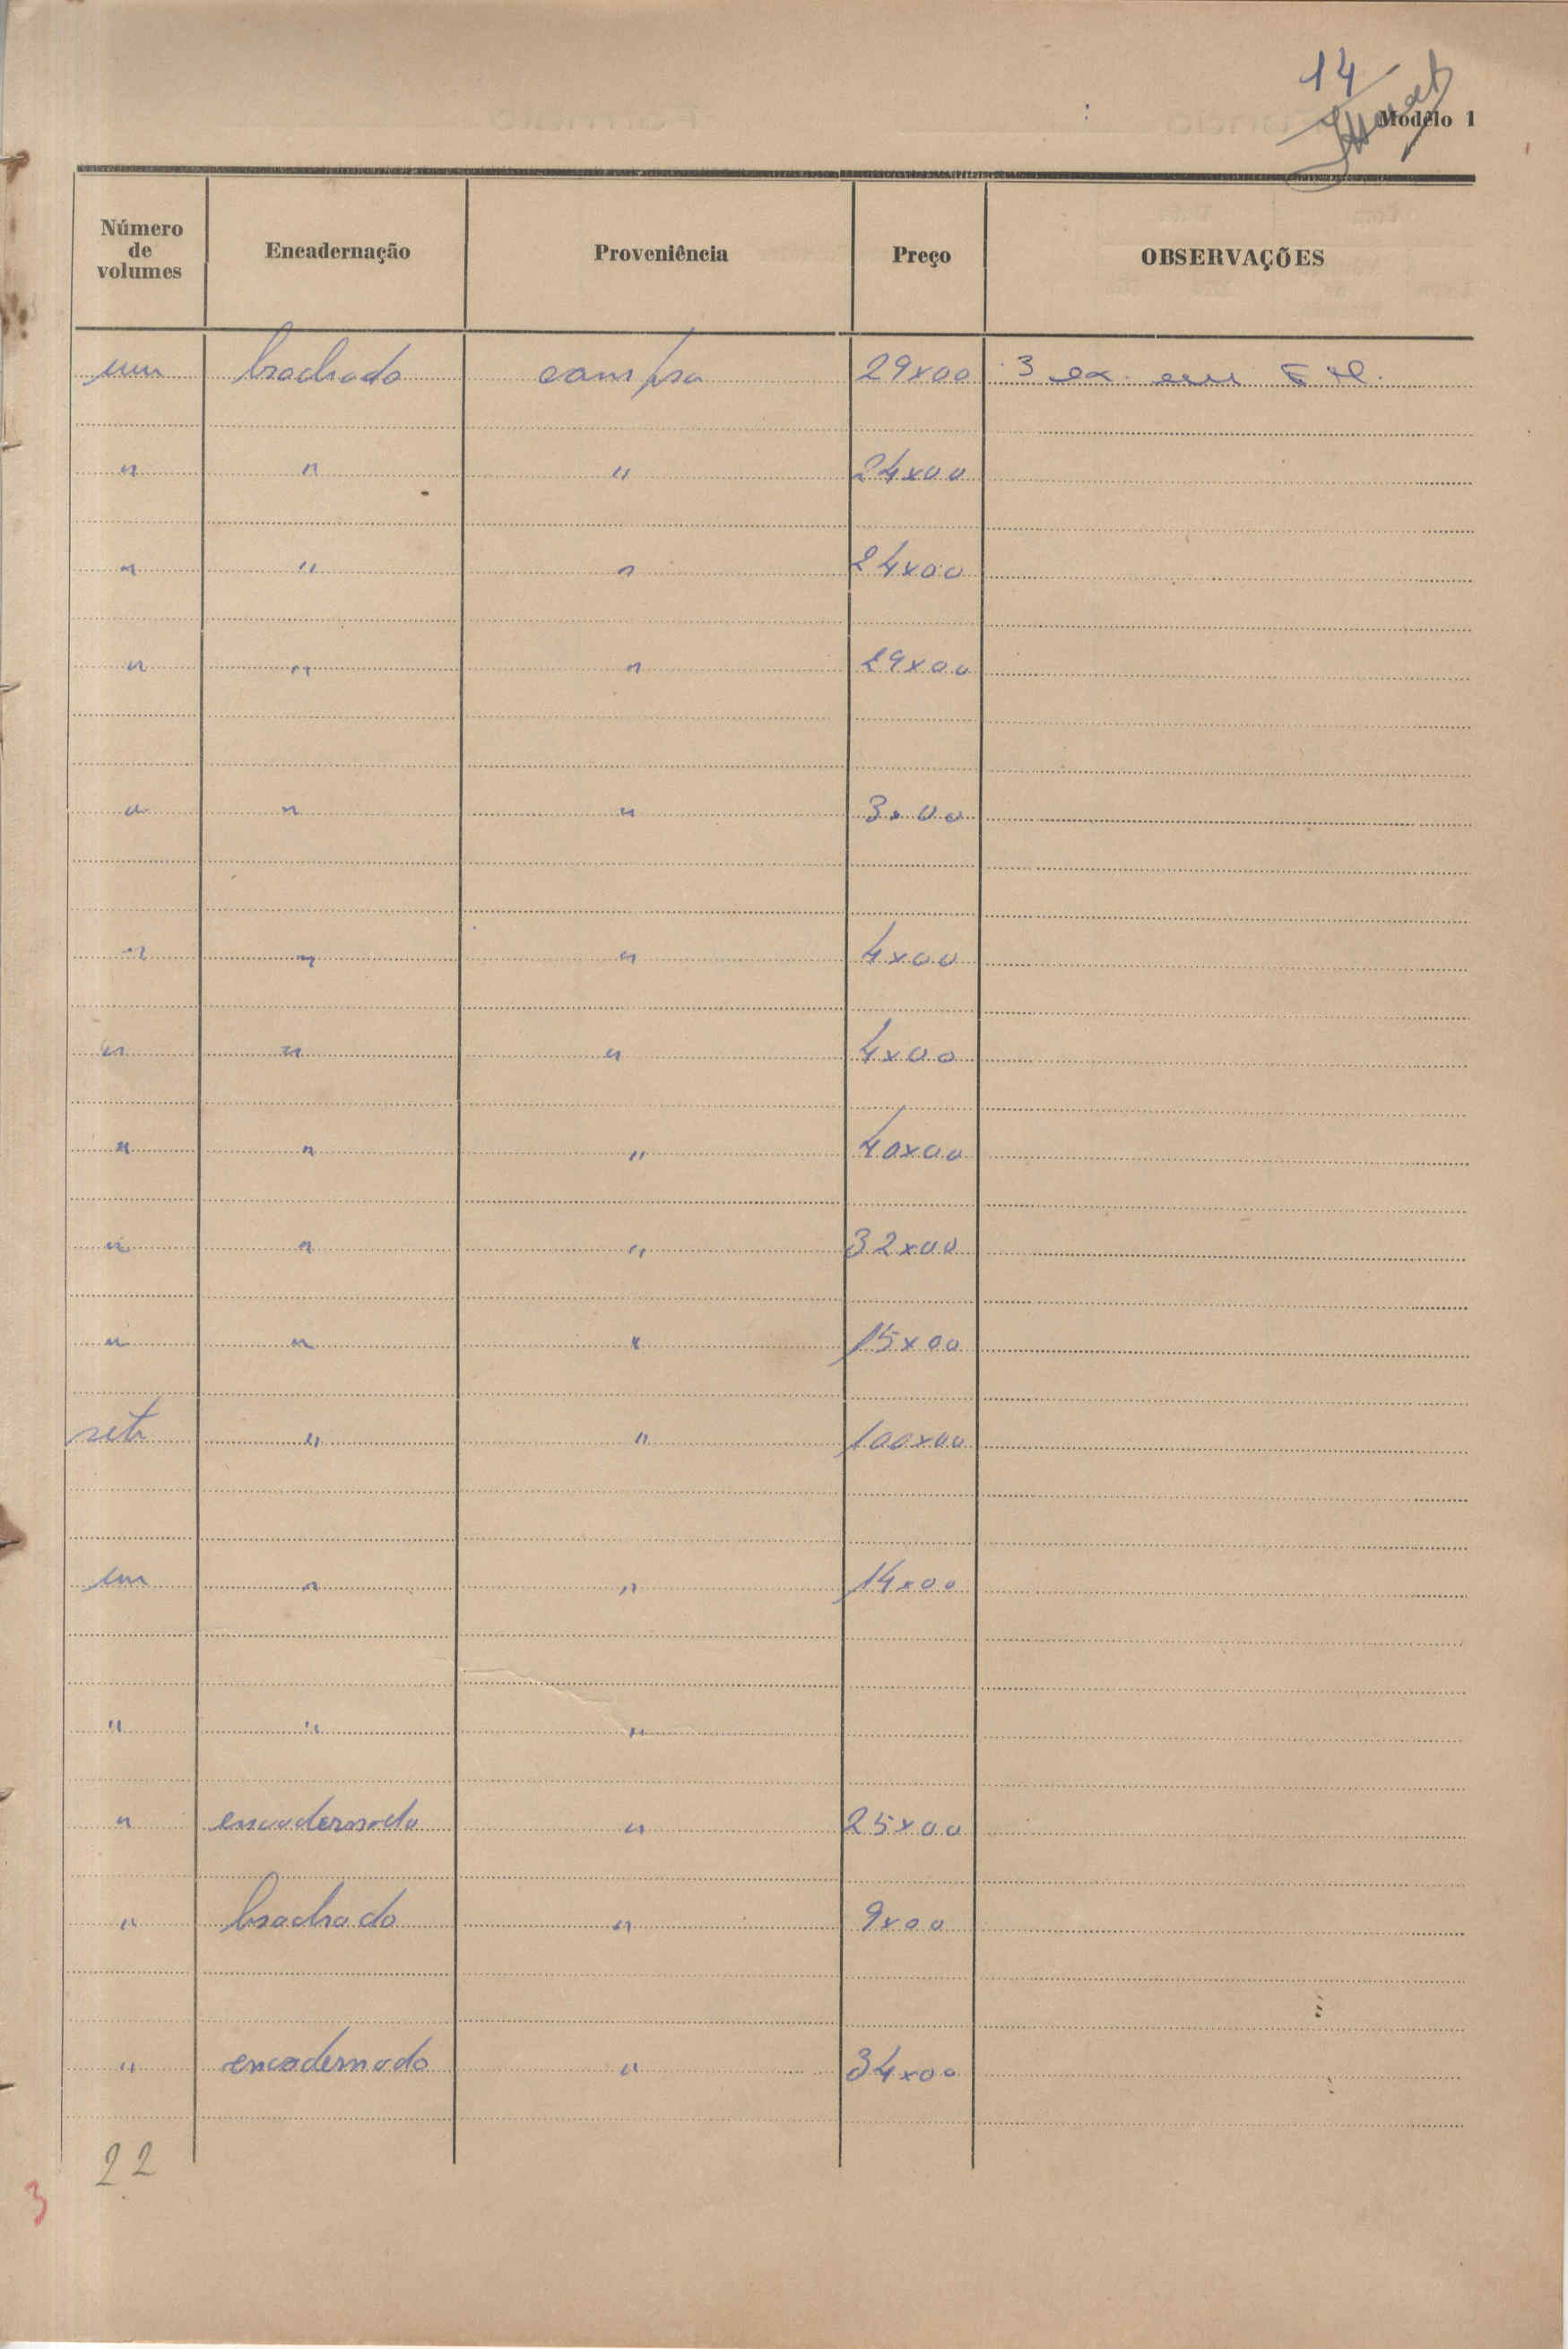 14
Modêlo 1
Número de volumes Encadernação Proveniência Preço OBSERVAÇÕES
um brochado compra 29x00 3 ex. em
" " " 24x00
" " " 24x00
" " " 29x00
" " " 3x00
" " " 4x00
" " " 4x00
" " " 40x00
" " " 32x00
" " " 15x00
sete " " 100x00
um " " 14x00
" " "
" encadernado " 25x00
" brochado " 9x00
" encadernado " 34x00
22
3